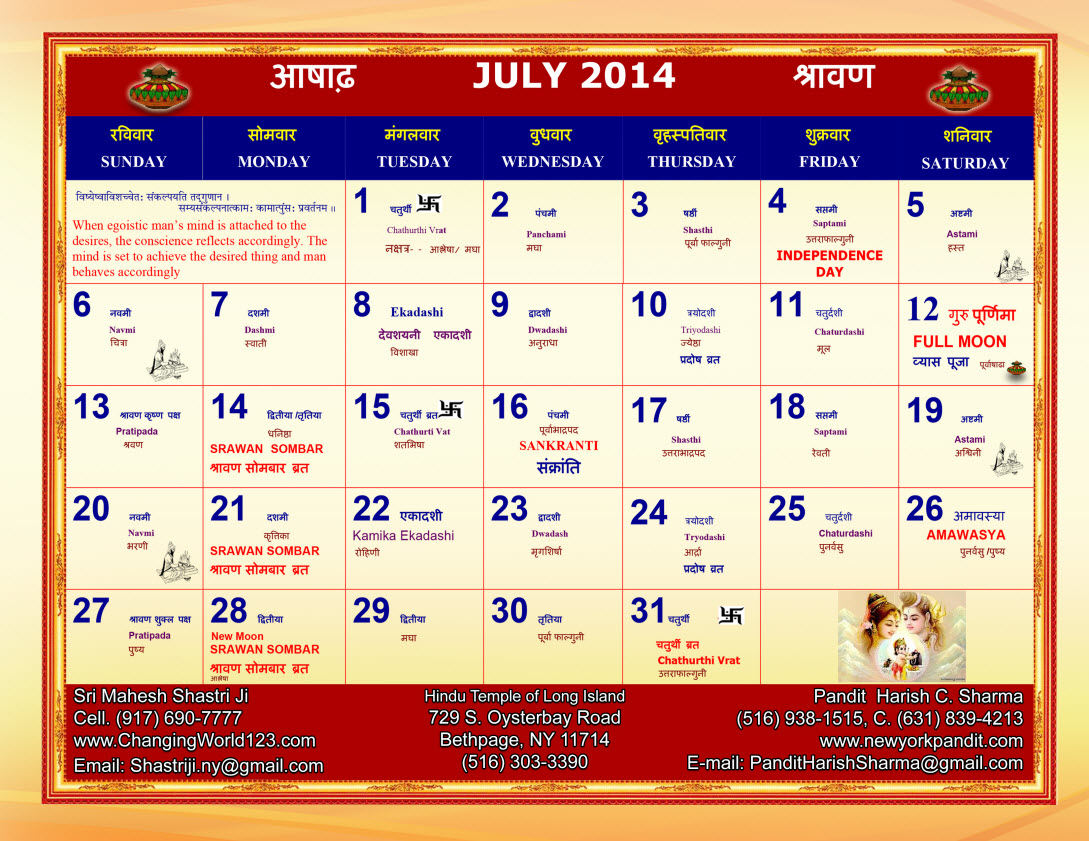 आषाढ़ JULY 2014 श्रावण
रविवार सोमवार मंगलवार वुधवार वृहस्पतिवार शुक्रवार शनिवार
SUNDAY MONDAY TUESDAY WEDNESDAY THURSDAY FRIDAY SATURDAY
विष्येष्वाविशच्चेतः संकल्पयति तद्गुणान ।
सम्यसंकल्पनात्कामः कामात्पुंसः प्रवर्तनम ॥
When egoistic man's mind is attached to the
desires, the conscience reflects accordingly. The
mind is set to achieve the desired thing and man
behaves accordingly
1 चतुर्थी
Chathurthi Vrat
नक्षत्र- - आश्लेषा/ मघा
2 पंचमी
Panchami
मघा
3 षष्ठी
Shasthi
पूर्वा फाल्गुनी
4 सप्तमी
Saptami
उत्तराफाल्गुनी
INDEPENDENCE
DAY
5 अष्टमी
Astami
हस्त
6 नवमी
Navmi
चित्रा
7 दशमी
Dashmi
स्वाती
8 Ekadashi
देवशयनी एकादशी
विशाखा
9 द्वादशी
Dwadashi
अनुराधा
10 त्रयोदशी
Triyodashi
ज्येष्ठा
प्रदोष व्रत
11 चतुर्दशी
Chaturdashi
मूल
12 गुरु पूर्णिमा
FULL MOON
व्यास पूजा पूर्वाषाढा
13 श्रावण कृष्ण पक्ष
Pratipada
श्रवण
14 द्वितीया /तृतिया
धनिष्ठा
SRAWAN SOMBAR
श्रावण सोमबार व्रत
15 चतुर्थी व्रत
Chathurti Vat
शतभिषा
16 पंचमी
पूर्वाभाद्रपद
SANKRANTI
संक्रांति
17 षष्ठी
Shasthi
उत्तराभाद्रपद
18 सप्तमी
Saptami
रेवती
19 अष्टमी
Astami
अश्विनी
20 नवमी
Navmi
भरणी
21 दशमी
कृत्तिका
SRAWAN SOMBAR
श्रावण सोमबार व्रत
22 एकादशी
Kamika Ekadashi
रोहिणी
23 द्वादशी
Dwadash
मृगशिर्षा
24 त्रयोदशी
Tryodashi
आर्द्रा
प्रदोष व्रत
25 चतुर्दशी
Chaturdashi
पुनर्वसु
26 अमावस्या
AMAWASYA
पुनर्वसु /पुष्य
27 श्रावण शुक्ल पक्ष
Pratipada
पुष्य
28 द्वितीया
New Moon
SRAWAN SOMBAR
श्रावण सोमबार व्रत
आश्लेषा
29 द्वितीया
मघा
30 तृतिया
पूर्वा फाल्गुनी
31 चतुर्थी
चतुर्थी व्रत
Chathurthi Vrat
उत्तराफाल्गुनी
Sri Mahesh Shastri Ji
Cell. (917) 690-7777
www.ChangingWorld123.com
Email: Shastriji.ny@gmail.com
Hindu Temple of Long Island
729 S. Oysterbay Road
Bethpage, NY 11714
(516) 303-3390
Pandit Harish C. Sharma
(516) 938-1515, C. (631) 839-4213
www.newyorkpandit.com
E-mail: PanditHarishSharma@gmail.com